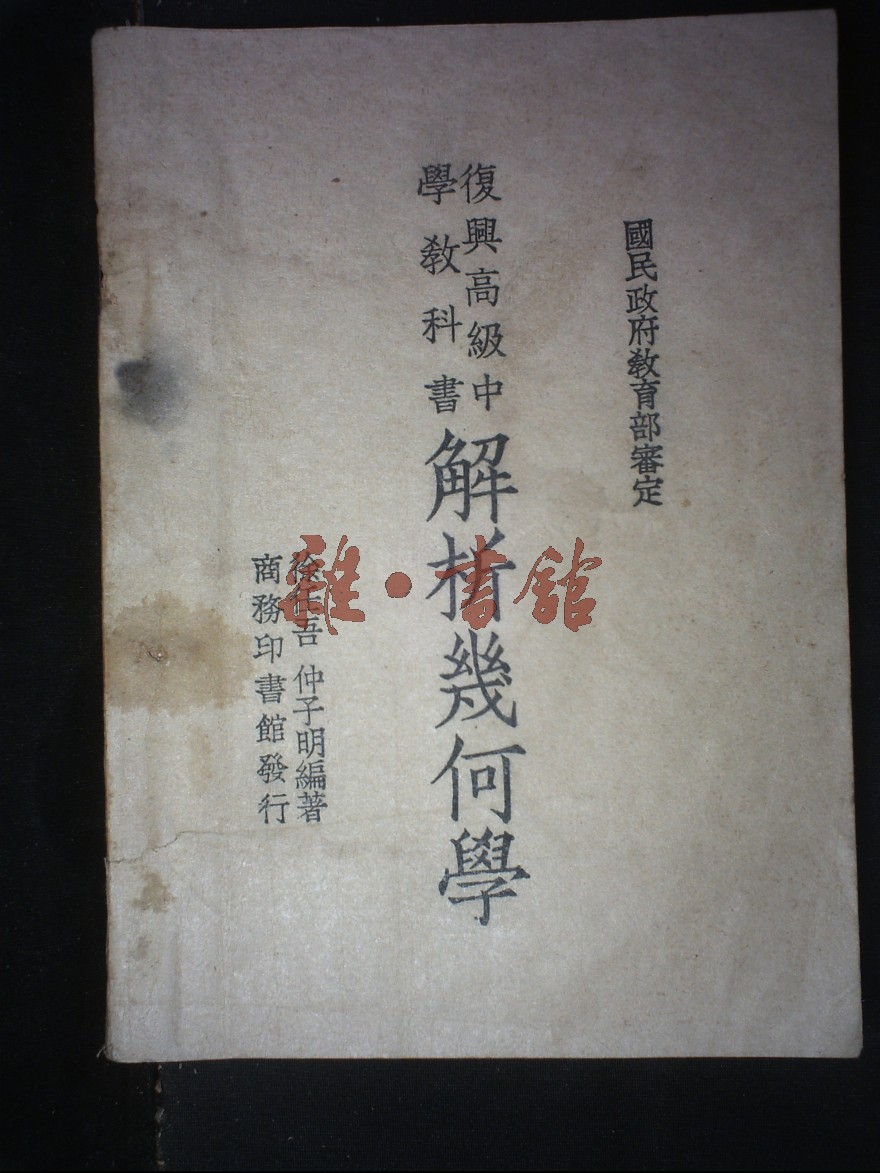 國民政府教育部審定
復興高級中
學教科書
解析幾何學
徐任吾 仲子明編著
商務印書館發行
雜·書館